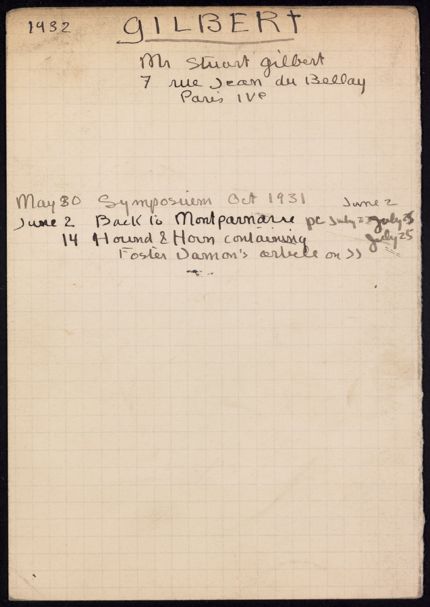 1932 GILBERT
Mr Stuart Gilbert
7 rue Jean du Bellay
Paris IVe
May 30 Symposium Oct 1931 June 2
June 2 Back to Montparnasse pc July July 25
14 Hound & Horn containing July 25
Foster Damon's article on JJ